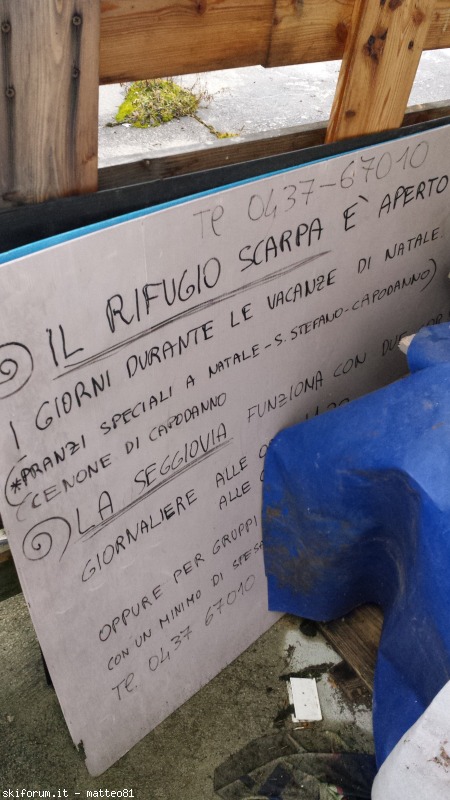 Te 0437-67010
IL RIFUGIO SCARPA E' APERTO
I GIORNI DURANTE LE VACANZE DI NATALE.
(*PRANZI SPECIALI A NATALE-S.STEFANO-CAPODANNO)
(CENONE DI CAPODANNO
LA SEGGIOVIA FUNZIONA CON DUE
GIORNALIERE ALLE
ALLE
OPPURE PER GRUPPI
CON UN MINIMO DI SPESA
Te. 0437 67010
skiforum.it - matteo81